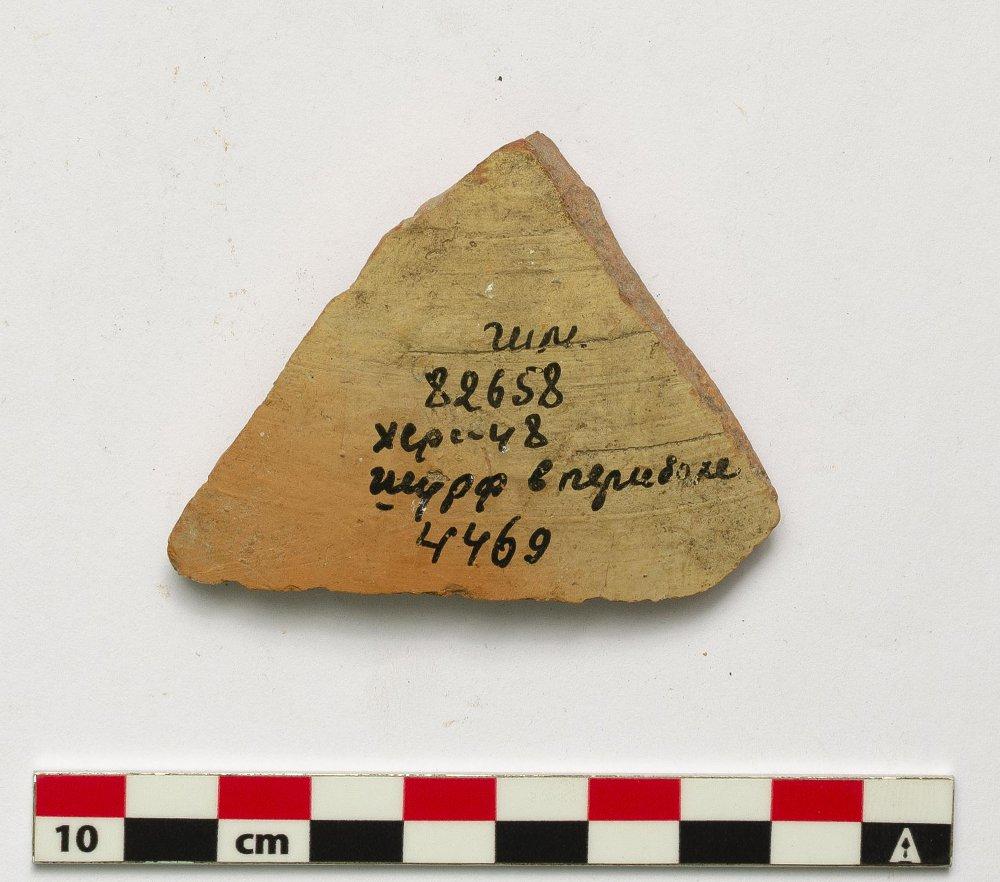 гим.
82658
херс-48
шурф в периболе
4469
10 cm